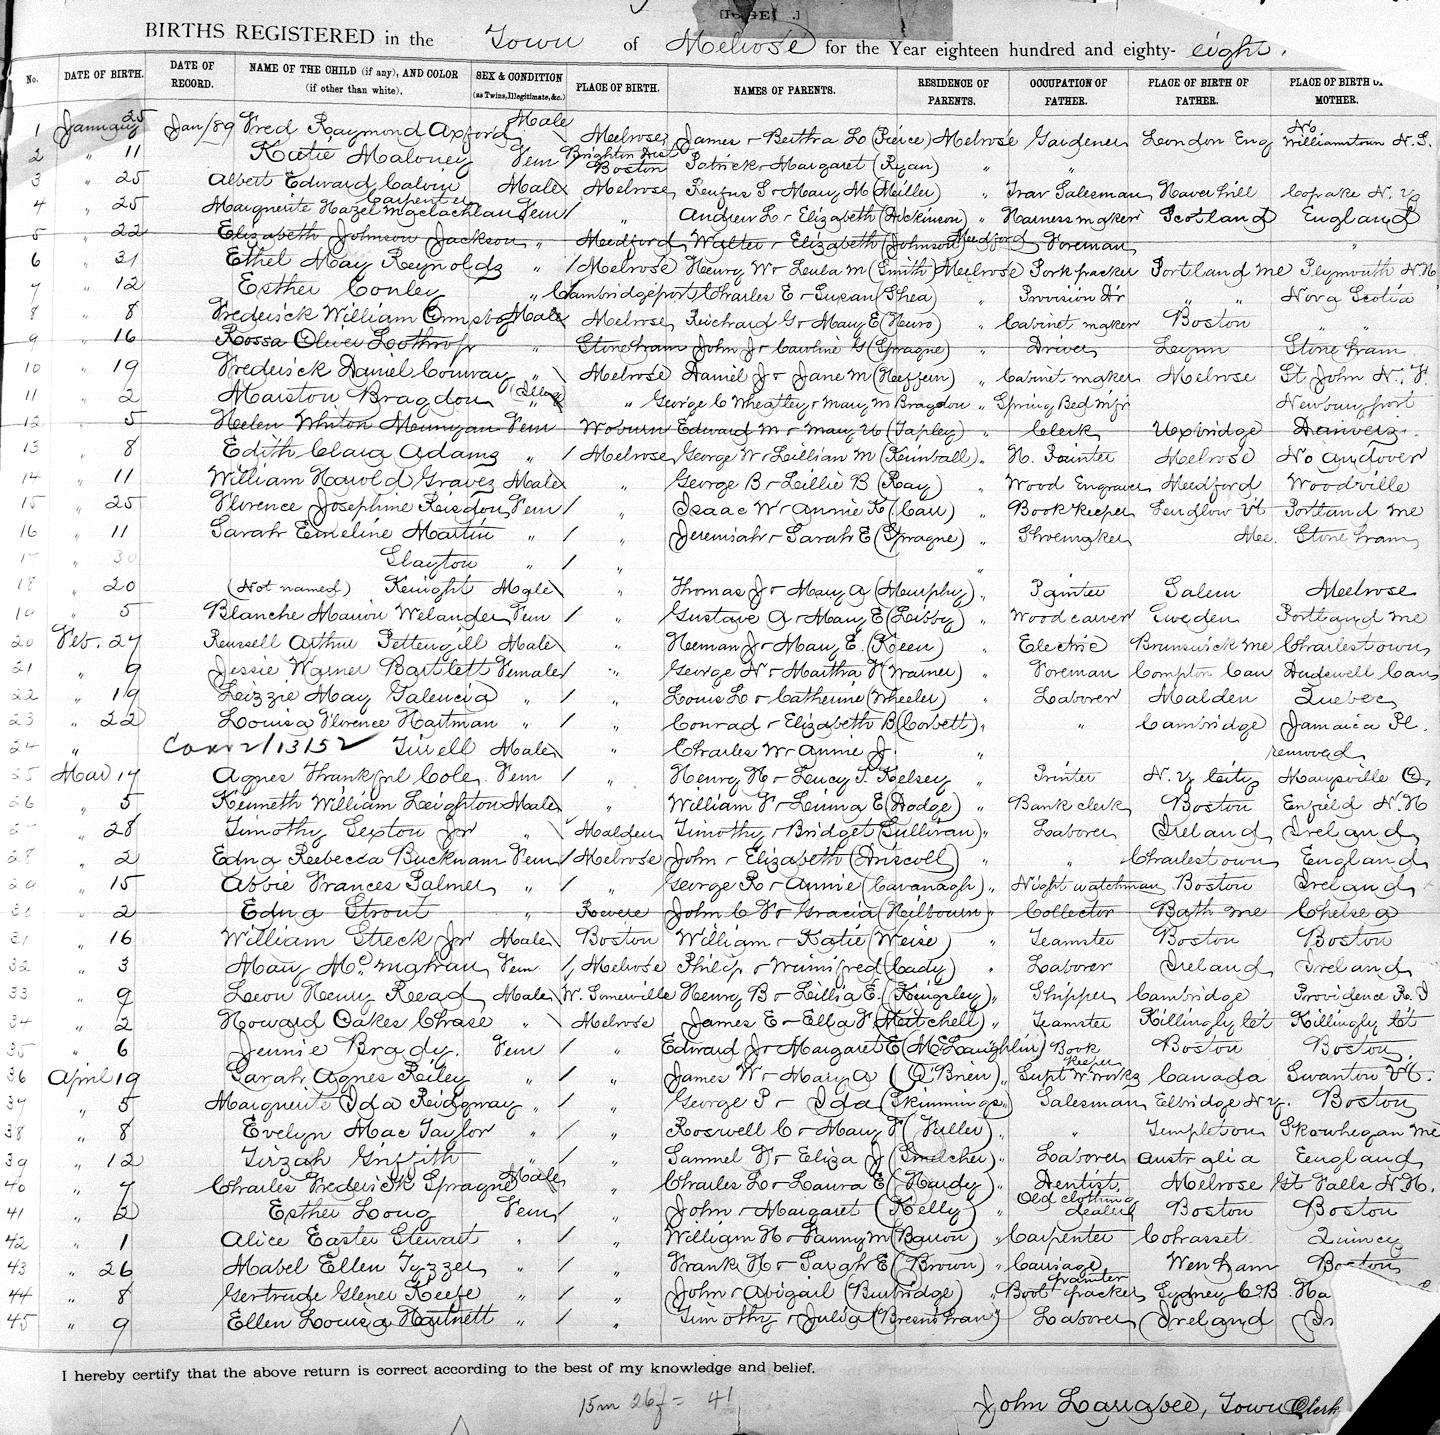 BIRTHS REGISTERED in the Town of Melrose for the Year eighteen hundred and eighty- eight.
No. DATE OF BIRTH. DATE OF RECORD. NAME OF THE CHILD (if any), AND COLOR (if other than white). SEX & CONDITION (as Twins, Illegitimate, &c.) PLACE OF BIRTH. NAMES OF PARENTS. RESIDENCE OF PARENTS. OCCUPATION OF FATHER. PLACE OF BIRTH OF FATHER. PLACE OF BIRTH OF MOTHER.
1 January 25 Jan/89 Fred Raymond Axford Male Melrose James & Bertha L (Peirce) Melrose Gardener London Eng No Williamstown N.S.
2 " 11 Katie Maloney Fem Brighton Dist Boston Patrick & Margaret (Ryan) " "
3 " 25 Albert Edward Calvin Carpenter Male Melrose Rufus S & Mary M (Miller) " Trav Salesman Haverhill Copake N.Y.
4 " 25 Marguerite Hazel McLachlan Fem " Andrew L & Elizabeth (Dickinson) " Harness maker Scotland England
5 " 22 Elizabeth Johnson Jackson " Medford Walter & Elizabeth (Johnson) Medford Foreman "
6 " 31 Ethel May Reynolds " Melrose Henry W & Leula M (Smith) Melrose Pork packer Portland Me Plymouth N.H.
7 " 12 Esther Conley " Cambridgeport Charles E & Susan (Shea) " Provision Dr " " Nova Scotia
8 " 8 Frederick William Ormsby Male Melrose Richard G & Mary E (Munro) " Cabinet maker Boston " "
9 " 16 Rossa Oliver Lothrop " Stoneham John J & Caroline G (Sprague) " Driver Lynn Stoneham
10 " 19 Frederick Daniel Conway " Melrose Daniel J & Jane M (Heffern) " Cabinet maker Melrose St John N.F.
11 " 2 Marston Bragdon (Illeg) " " George C Wheatley & Mary M Bragdon " Spring Bed Mfr Newburyport
12 " 5 Helen Whiton Munyan Fem Woburn Edward M & Mary U (Tapley) " Clerk Uxbridge Danvers
13 " 8 Edith Clara Adams " Melrose George W & Lillian M (Kimball) " H. Painter Melrose No Andover
14 " 11 William Harold Graves Male " George B & Lillie B (Ray) " Wood Engraver Medford Woodville
15 " 25 Florence Josephine Reisdon Fem " Isaac W & Annie K (Carr) " Book keeper Ludlow Vt Portland Me
16 " 11 Sarah Emeline Martin " " Jeremiah & Sarah E (Sprague) " Shoemaker Me. Stoneham
17 " 30 Slayton " " "
18 " 20 (Not named) Knight Male " Thomas J & Mary A (Murphy) " Painter Salem Melrose
19 " 5 Blanche Marion Welander Fem " Gustave A & Mary E (Libby) " Wood carver Sweden Portland Me
20 Feb. 27 Russell Arthur Pettengill Male " Heman J & Mary E. (Keen) " Electric Brunswick Me Charlestown
21 " 9 Jessie Warner Bartlett Female " George N & Martha F (Warner) " Foreman Compton Can Can
22 " 19 Lizzie May Valencia " " Louis L & Catherine (Wheeler) " Laborer Malden Quebec
23 " 22 Louisa Florence Hartman " " Conrad & Elizabeth B (Corbett) " " Cambridge Jamaica Pl.
24 " Corr 2/13/52 ✓ Tirrell Male " Charles W & Annie J. removed
25 Mar 17 Agnes Thankful Cole Fem " Henry H & Lucy S. Kelsey " Printer N.Y. City Maysville O.
26 " 5 Kenneth William Leighton Male " William F & Linna E (Hodge) " Bank clerk Boston Enfield N.H
27 " 28 Timothy Sexton Jr " Malden Timothy & Bridget (Sullivan) " Laborer Ireland Ireland
28 " 2 Edna Rebecca Bucknam Fem Melrose John & Elizabeth (Driscoll) " " Charlestown England
29 " 15 Abbie Frances Palmer " " George R & Annie (Cavanagh) " Night watchman Boston Ireland
30 " 2 Edna Strout " Revere John C F & Gracia (Milbourn) " Collector Bath Me Chelsea
31 " 16 William Streck Jr Male Boston William & Katie (Weise) " Teamster Boston Boston
32 " 3 May Fem Melrose Philip & Winnifred (Cady) " Laborer Ireland Ireland
33 " 9 Leon Henry Read Male W. Somerville Henry B & Lillia E. (Kingsley) " Shipper Cambridge Providence R.I
34 " 2 Howard Oakes Chase " Melrose James E & Ella F (Mitchell) " Teamster Killingly Ct Killingly Ct
35 " 6 Jennie Brady. Fem " Edward J & Margaret E (McLaughlin) Book keeper Boston Boston
36 April 19 Sarah Agnes Riley " " James W & Mary A (O'Brien) " Supt W. Works Canada Swanton Vt.
37 " 5 Marguerite Ida Ridgway " " George P & Ida (Skimmings) " Salesman Elbridge N.Y. Boston
38 " 8 Evelyn Mae Taylor " " Roswell C & Mary F (Fuller) " " Templeton Skowhegan Me
39 " 12 Tirzah Griffith " " Samuel F & Eliza J (Smelcher) " Laborer Australia England
40 " 7 Charles Frederick Sprague Male " Charles L & Laura E (Hardy) " Dentist Melrose Gt Falls N.H.
41 " 2 Esther Long Fem " John & Margaret (Kelly) " Old clothing dealer Boston Boston
42 " 1 Alice Easter Stewart " " William H & Fanny M (Barron) " Carpenter Cohasset Quincy
43 " 26 Mabel Ellen Tyzzer " " Frank H & Sarah E (Brown) " Carriage painter Wenham Boston
44 " 8 Gertrude Glenes Keefe " " John & Abigail (Burbridge) " Boot packer Sydney C.B. Ha
45 " 9 Ellen Louisa Hartnett " " Timothy & Julia (Bresnahan) " Laborer Ireland Ir
I hereby certify that the above return is correct according to the best of my knowledge and belief.
15m 26f = 41
John Larrabee, Town Clerk